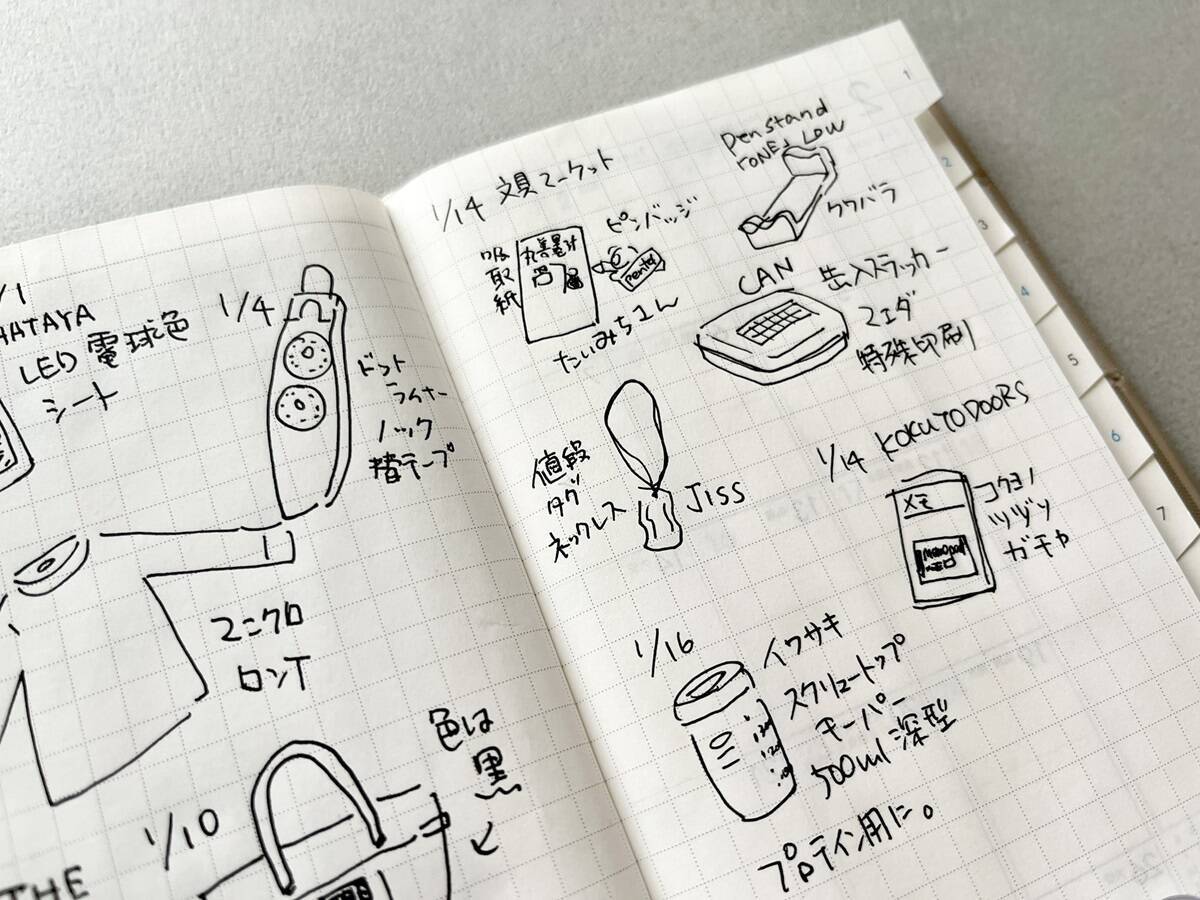 /1
HATAYA
LED電球色
シート
1/4
ドット
ライナー
ノック
替テープ
ユニクロ
ロンT
1/10
色は
黒
THE
1/14 文具マーケット
吸取紙
ピンバッジ
Pentel
たいみちさん
Pen stand
LOW
クワバラ
CAN
缶入スタッカー
マエダ
特殊印刷
値段
タグ
ネックレス
JISS
1/14 KOKUYODOORS
メモ
コクヨノ
ツヅソ
ガチャ
1/16
イワサキ
スクリュートップ
キーパー
500ml 深型
プロテイン用に。
1
2
3
4
5
6
7